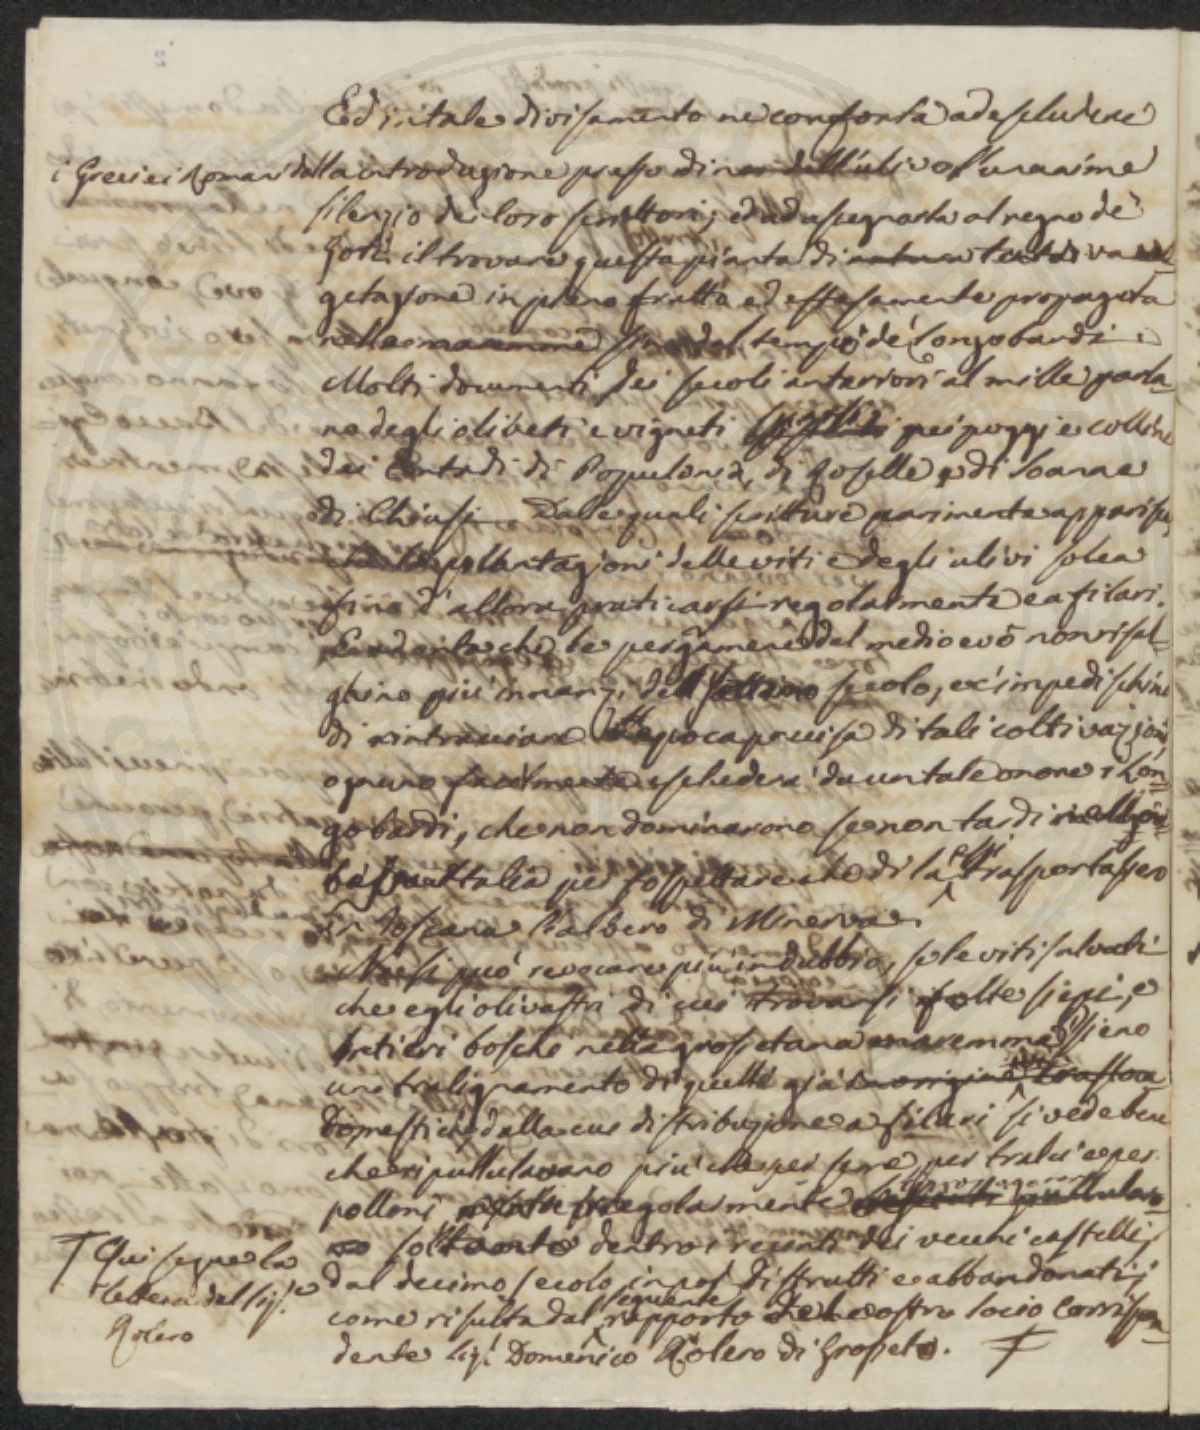 Ed in tale divisamento ne conforta ad escludere
i Greci e i Romani dalla introduzione presso di noi dell'ulivo l'unanime
silenzio de' loro scrittori; ed ad assegnarla al regno de'
Goti il trovare questa pianta di tarda ve
getazione in pieno frutto ed estesamente propagata
nella maremma sino dal tempo de' Longobardi.
Molti documenti dei secoli anteriori al mille parla-
no degli oliveti e vigneti pei poggi e colline
dei Contadi di Populonia, di Roselle e di Soana e
di Chiusi. Dalle quali scritture parimente apparisce,
che le piantagioni delle viti e degli ulivi solea
fino d'allora praticarsi regolarmente e a filari.
che le pergamene del medio evo non risal-
ghino più innanzi del settimo secolo, e c'impedischino
di rintracciare l'epoca precisa di tali coltivazioni
ognuno facilmente escluderà da un tale onore i Lon-
gobardi, che non dominarono se non tardi
Italia per sospettare che di là essi trasportassero
in Toscana l'albero di Minerva.
Non si può revocare più in dubbio, se le viti salvati-
che e gli olivastri di cui trovansi folte siepi, e
intieri boschi nella grossetana maremma sieno
uno tralignamento di quelli già in origine
domestici, dalla cui distribuzione a filari si vede bene
che ripullulavano più che per seme, per tralci e per
polloni regolarmente propagarono
soltanto dentro i recinti dei vecchi castelli,
dal decimo secolo in poi distrutti e abbandonati;
come risulta dal seguente rapporto del nostro socio corrispon-
dente Sig.r Domenico Rolero di Grosseto. ⨍
⨍ Qui segue la
lettera del Sig.e
Rolero